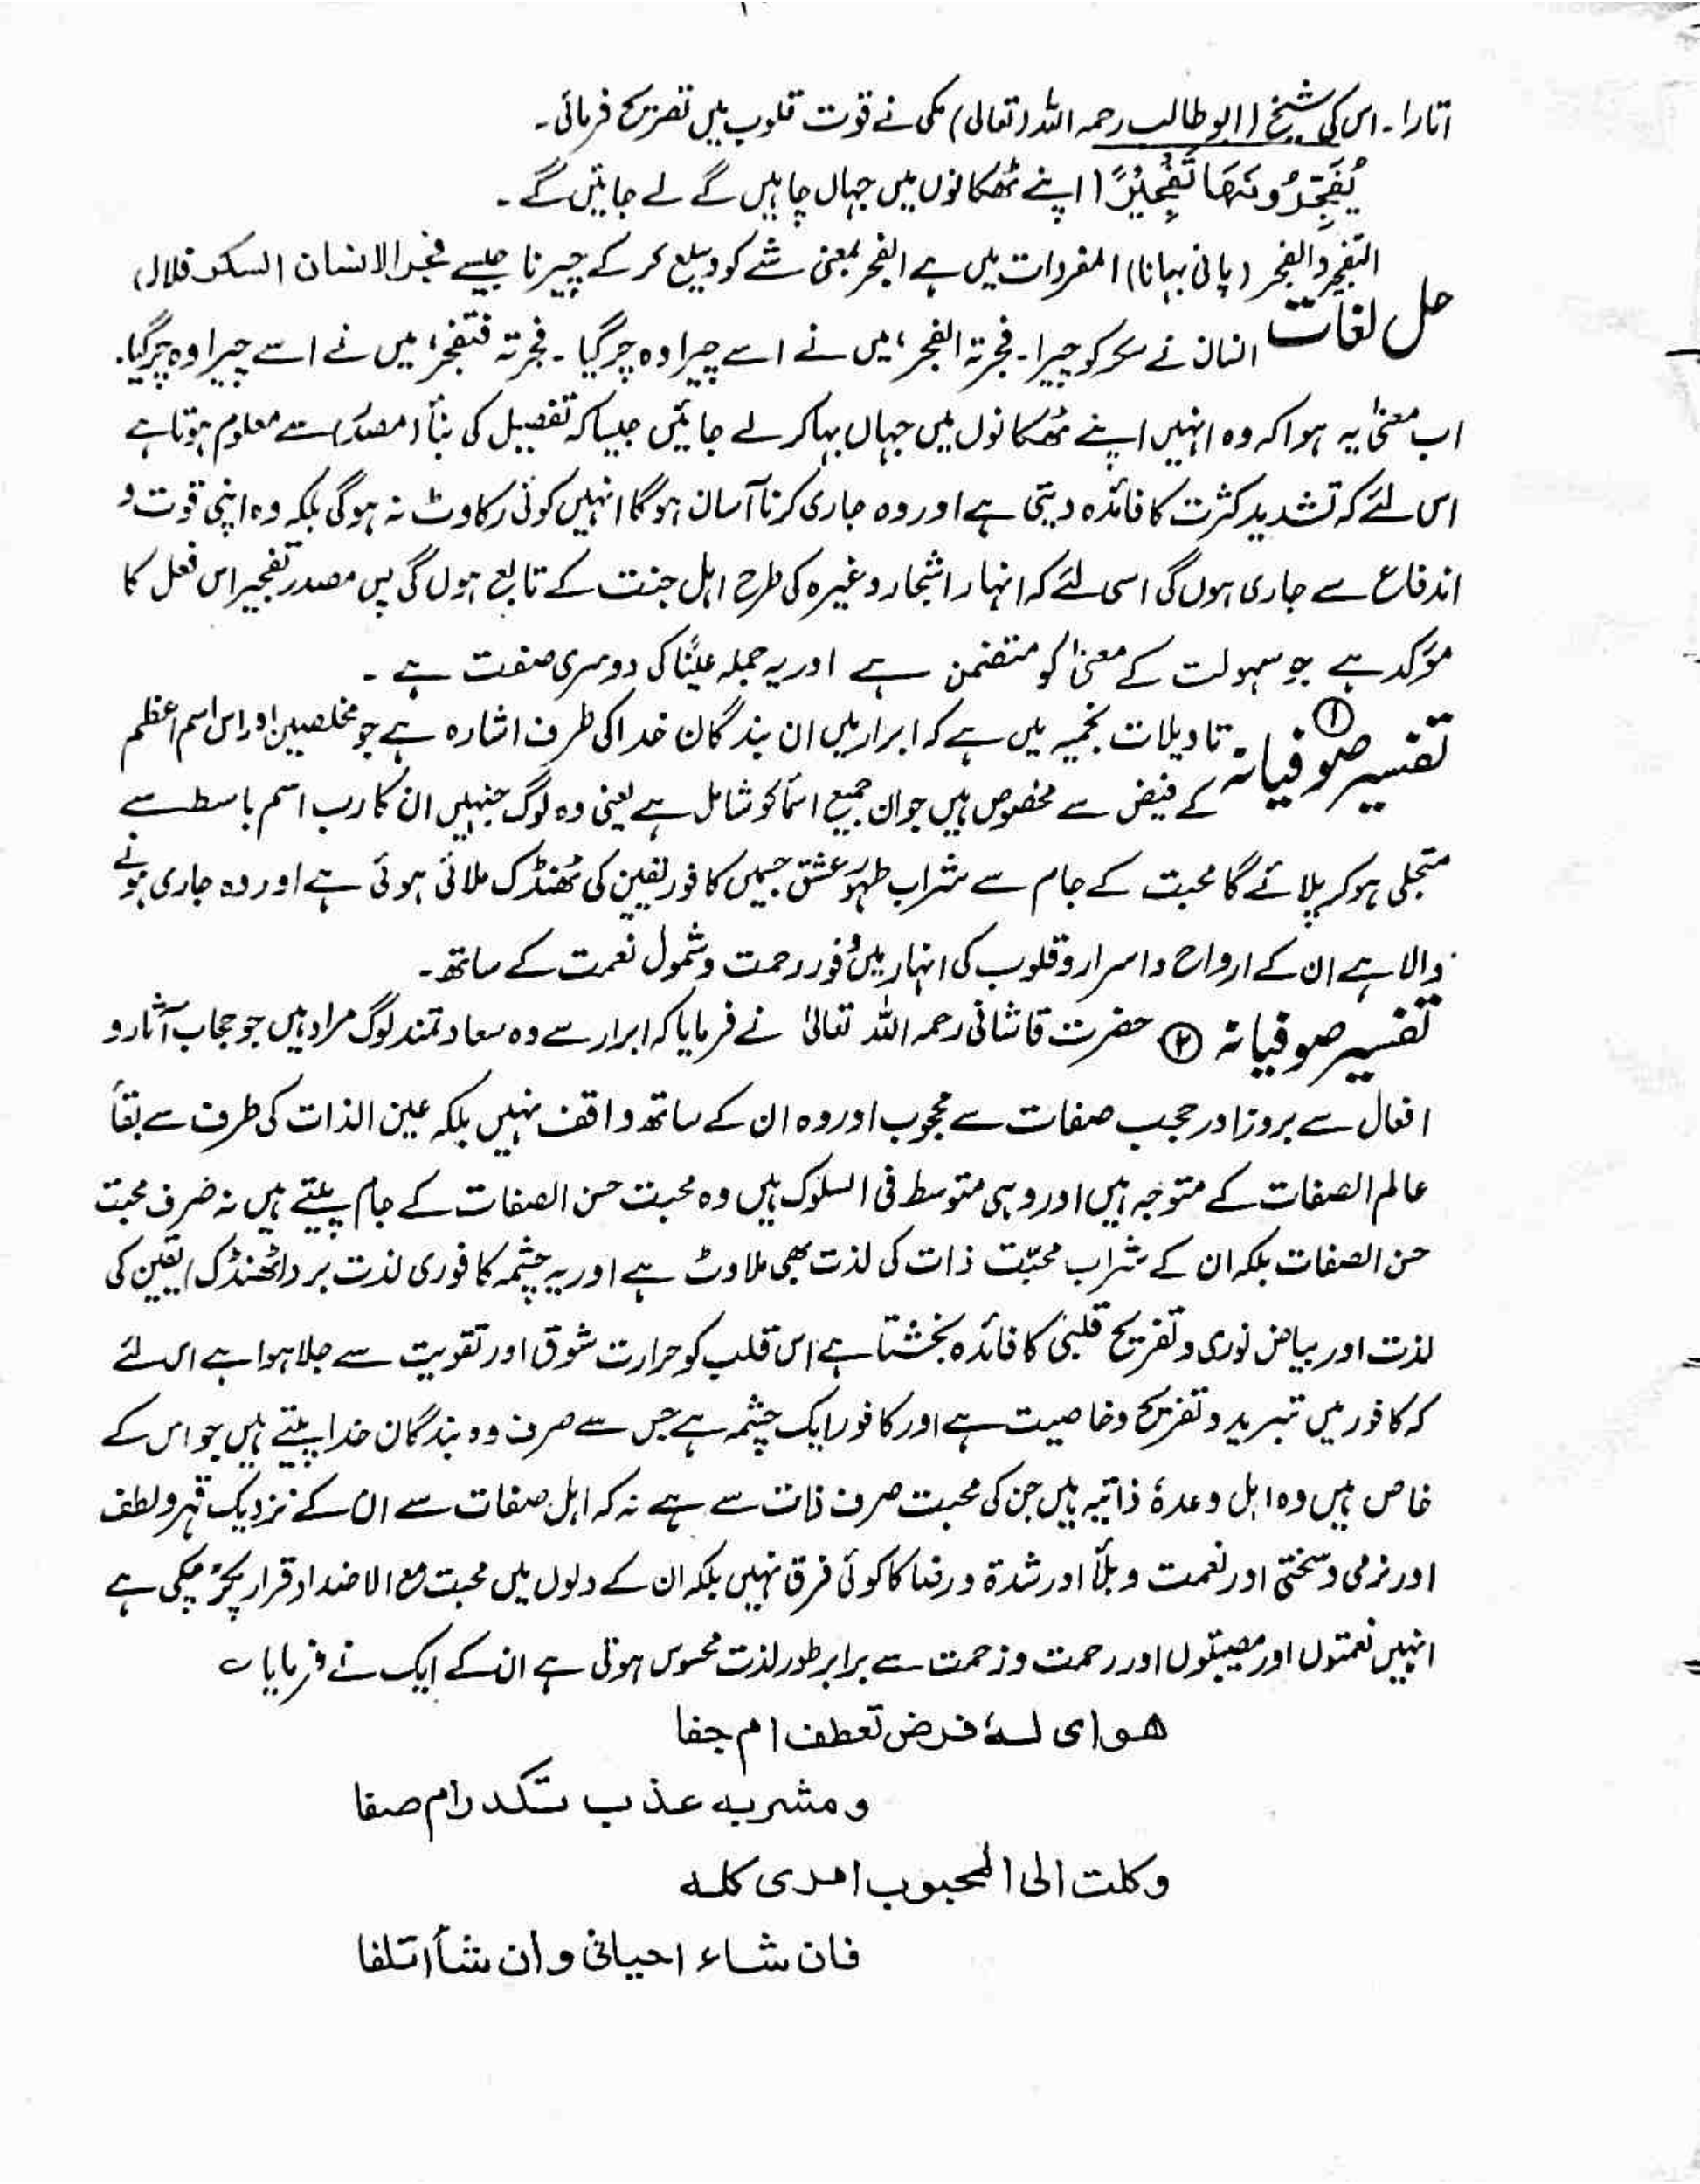 اتارا۔ اس کی شیخ (ابو طالب رحمہ اللہ (تعالی) مکی نے قوت قلوب میں تصریح فرمائی۔
يُفَجِّرُونَهَا تَفْجِيْرًا (اپنے ٹھکانوں میں جہاں چاہیں گے لے جائیں گے۔
حل لغات
التفجیر والفجر (پانی بہانا) المفردات میں ہے الفجر بمعنی شے کو وسیع کر کے چیرنا جیسے فجر الانسان السکر فلال)
انسان نے سکر کو چیرا۔ فجرتہ الفجر، میں نے اسے چیرا وہ چر گیا۔ فجرتہ فتفجر، میں نے اسے چیرا وہ چر گیا.
اب معنی یہ ہوا کہ وہ انہیں اپنے ٹھکانوں میں جہاں بہا کر لے جائیں جیسا کہ تفصیل کی بنأ (مصدر) سے معلوم ہوتا ہے
اس لئے کہ تشدید کثرت کا فائدہ دیتی ہے اور وہ جاری کرنا آسان ہو گا انہیں کوئی رکاوٹ نہ ہوگی بلکہ وہ اپنی قوت و
اندفاع سے جاری ہوں گی اسی لئے کہ انہار اشجار وغیرہ کی طرح اہل جنت کے تابع ہوں گی پس مصدر تفجیر اس فعل کا
مؤکد ہے جو سہولت کے معنیٰ کو متضمن ہے اور یہ جملہ عینًا کی دوسری صفت ہے ۔
تفسیر صوفیانہ ①
تاویلات نجمیہ میں ہے کہ ابرار میں ان بندگان خدا کی طرف اشارہ ہے جو مخلصین اور اس اسم اعظم
کے فیض سے مخصوص ہیں جو ان جمیع اسمأ کو شامل ہے یعنی وہ لوگ جنہیں ان کا رب اسم باسط سے
متجلی ہو کر پلائے گا محبت کے جام سے شراب طہور عشق جسمیں کافور یقین کی ٹھنڈک ملائی ہوئی ہے اور وہ جاری ہونے
والا ہے ان کے ارواح و اسرار و قلوب کی انہار میں وفور رحمت و شمول نعمت کے ساتھ۔
تفسیر صوفیانہ ② حضرت قاشانی رحمہ اللہ تعالیٰ نے فرمایا کہ ابرار سے وہ سعادتمند لوگ مراد ہیں جو حجاب آثار و
افعال سے بروز اور حجب صفات سے محجوب اور وہ ان کے ساتھ واقف نہیں بلکہ عین الذات کی طرف سے بقأ
عالم الصفات کے متوجہ ہیں اور وہی متوسط فی السلوک ہیں وہ محبت حسن الصفات کے جام پیتے ہیں نہ صرف محبت
حسن الصفات بلکہ ان کے شراب محبّت ذات کی لذت بھی ملاوٹ ہے اور یہ چشمہ کافوری لذت برد (ٹھنڈک) یقین کی
لذت اور بیاض نوری و تفریح قلبی کا فائدہ بخشتا ہے اس قلب کو حرارت شوق اور تقویت سے جلا ہوا ہے اس لئے
کہ کافور میں تبرید و تفریح و خاصیت ہے اور کافور ایک چشمہ ہے جس سے صرف وہ بندگان خدا پیتے ہیں جو اس کے
خاص ہیں وہ اہل وحدۃ ذاتیہ ہیں جن کی محبت صرف ذات سے ہے نہ کہ اہل صفات سے ان کے نزدیک قہر و لطف
اور نرمی و سختی اور نعمت و بلأ اور شدۃ و رضا کا کوئی فرق نہیں بلکہ ان کے دلوں میں محبت مع الاضداد قرار پکڑ چکی ہے
انہیں نعمتوں اور مصیبتوں اور رحمت و زحمت سے برابر طور لذت محسوس ہوتی ہے ان کے ایک نے فرمایا ؎
ھوای لہ فرض تعطف ام جفا
و مشربہ عذب تکدر ام صفا
وکلت الی المحبوب امری کلہ
فان شاء احیانی وان شأ اتلفا